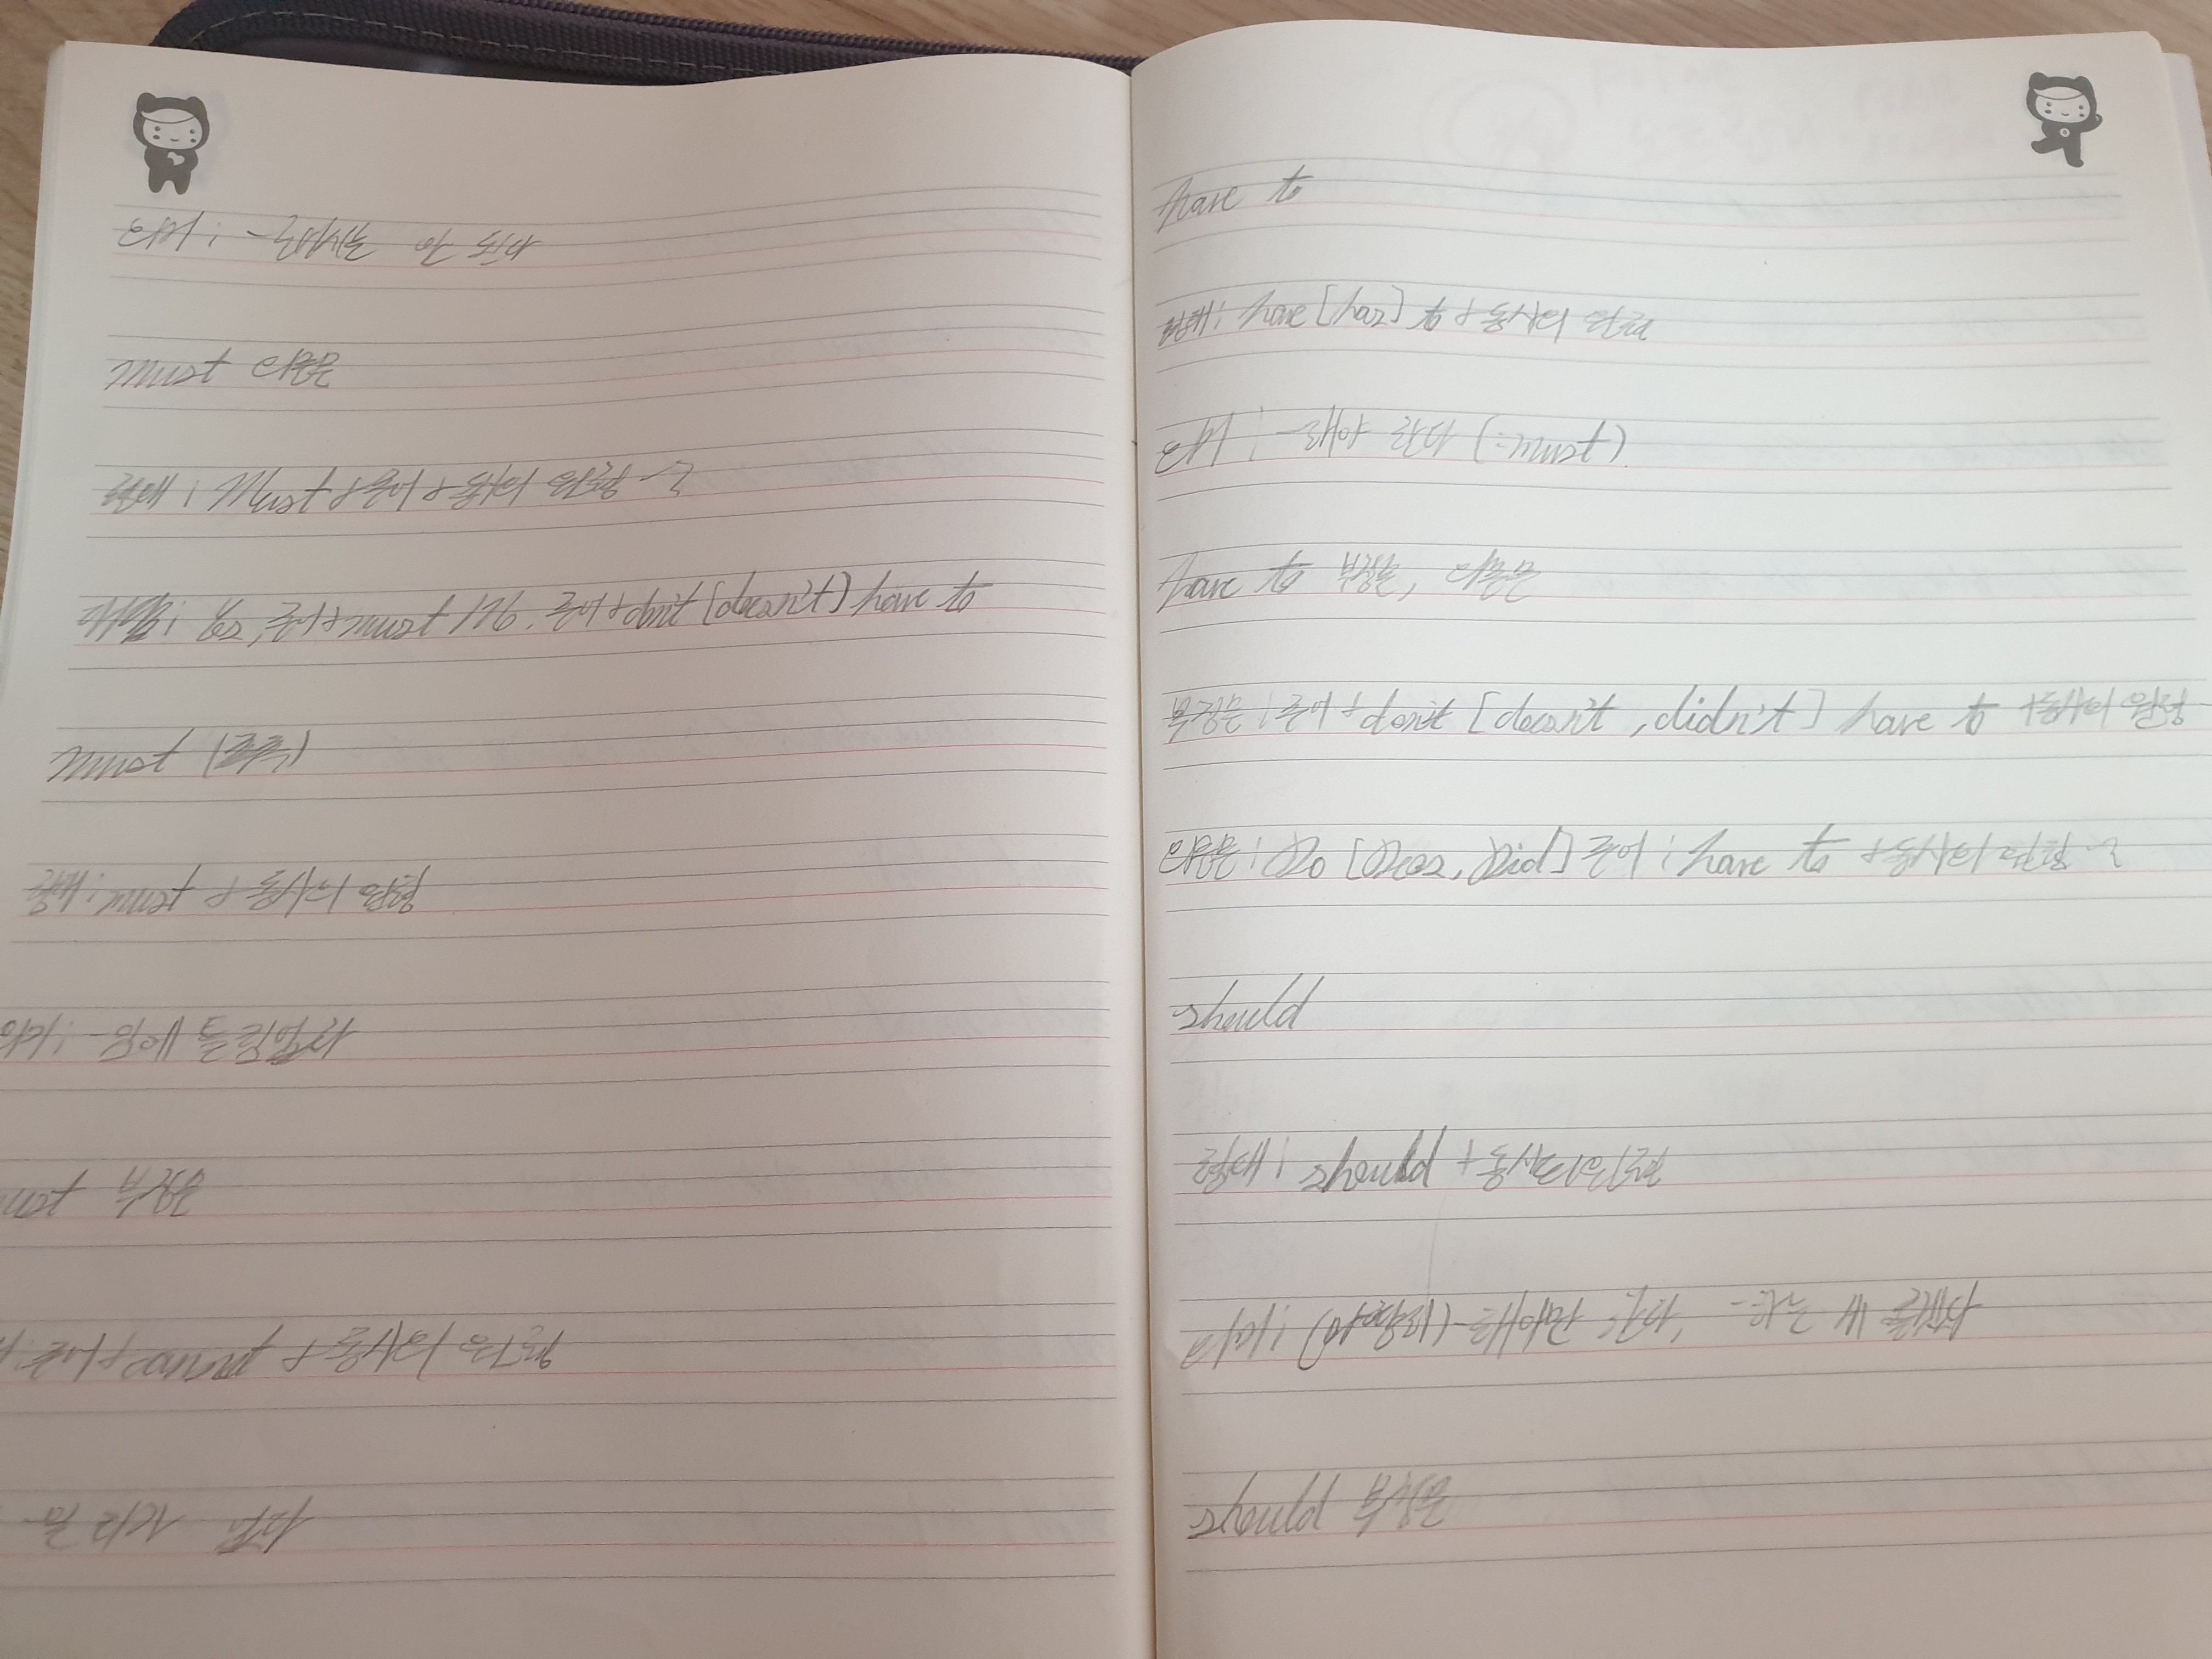 의미 ; ~해서는 안 된다
must 의문문
형태 ; Must + 주어 + 동사의 원형 ~?
대답 ; Yes, 주어 + must / No, 주어 + don't [doesn't] have to
must (추측)
형태 ; must + 동사의 원형
의미 ; ~임에 틀림없다
ust 부정문
주어 + cannot + 동사의 원형
~일 리가 없다
have to
형태 ; have [has] to + 동사의 원형
의미 ; ~해야 한다 (: must)
have to 부정문, 의문문
부정문 ; 주어 + don't [doesn't, didn't] have to + 동사의 원형
의문문 ; Do [Does, Did] 주어 ; have to + 동사의 원형 ~?
should
형태 ; should + 동사의 원형
의미 ; (마땅히) ~해야만 한다, ~하는 게 좋겠다
should 부정문